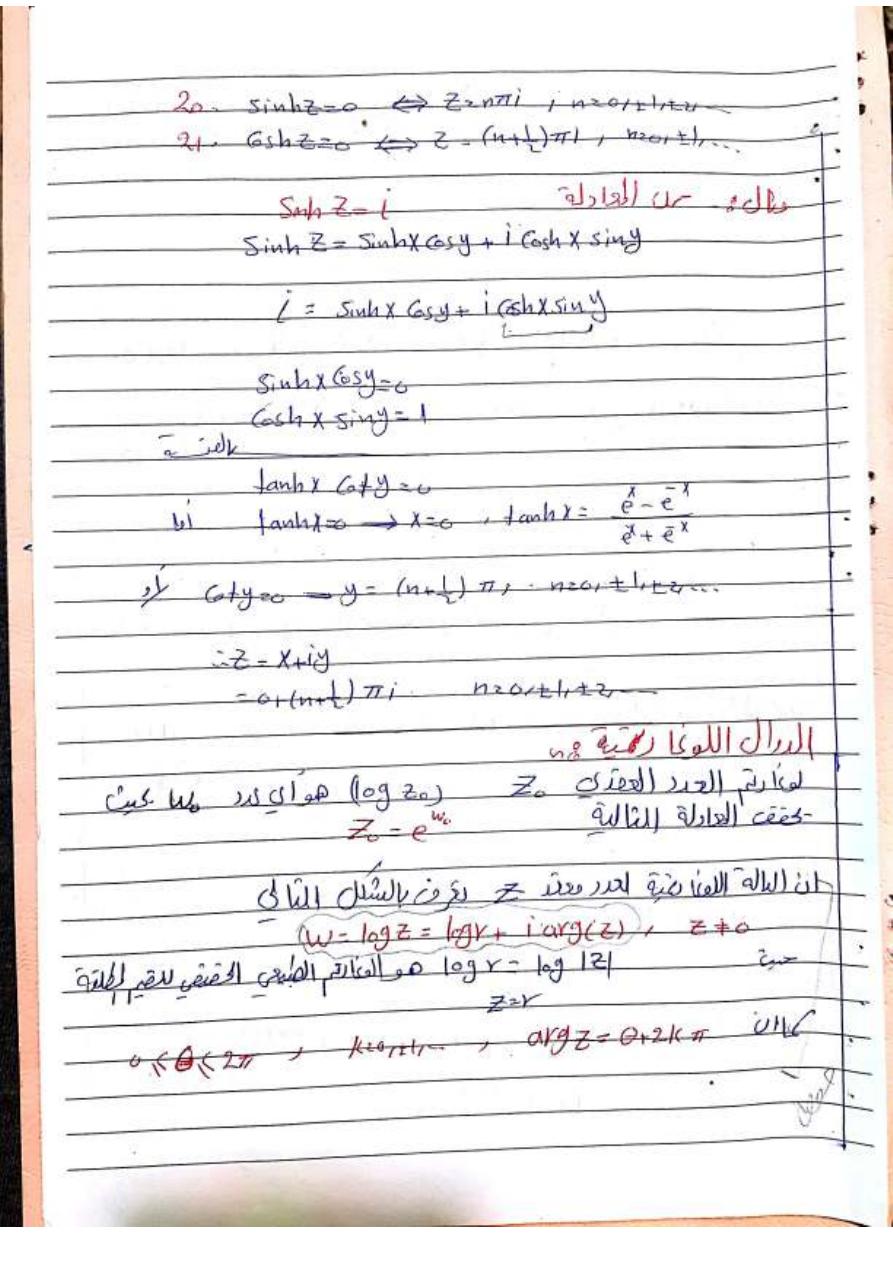 20. sinhz=0 ⇔ z=nπi ; n=0,±1,±2,....
21. Coshz=0 ⇔ z=(n+1/2)πi , n=0,±1,....
مثال:- حل المعادلة Sinh z=i
Sinh z = Sinhx cosy + i cosh x siny
i = sinhx cosy + i coshx siny
Sinhx cosy=0
Coshx siny=1
بالقسمة
tanhx coty=0
أما tanhx=0 → x=0 , tanhx = (e^x - e^-x)/(e^x + e^-x)
أو coty=0 → y=(n+1/2)π, n=0,±1,±2,...
∴z = x+iy
=0+(n+1/2)πi n=0,±1,±2,....
الدوال اللوغارتمية
لوغارتم العدد العقدي z₀ (log z₀) هو أي عدد w₀ بحيث
يحقق المعادلة التالية z₀ = e^w₀
ان الدالة اللوغارتمية لعدد معقد z تعرف بالشكل التالي
w = logz = logr + i arg(z) , z≠0
حيث logr = log|z| هو اللوغارتم الطبيعي الحقيقي للقيم المطلقة
z=r
كما ان argz=θ+2kπ , k=0,±1,... , 0≤θ≤2π